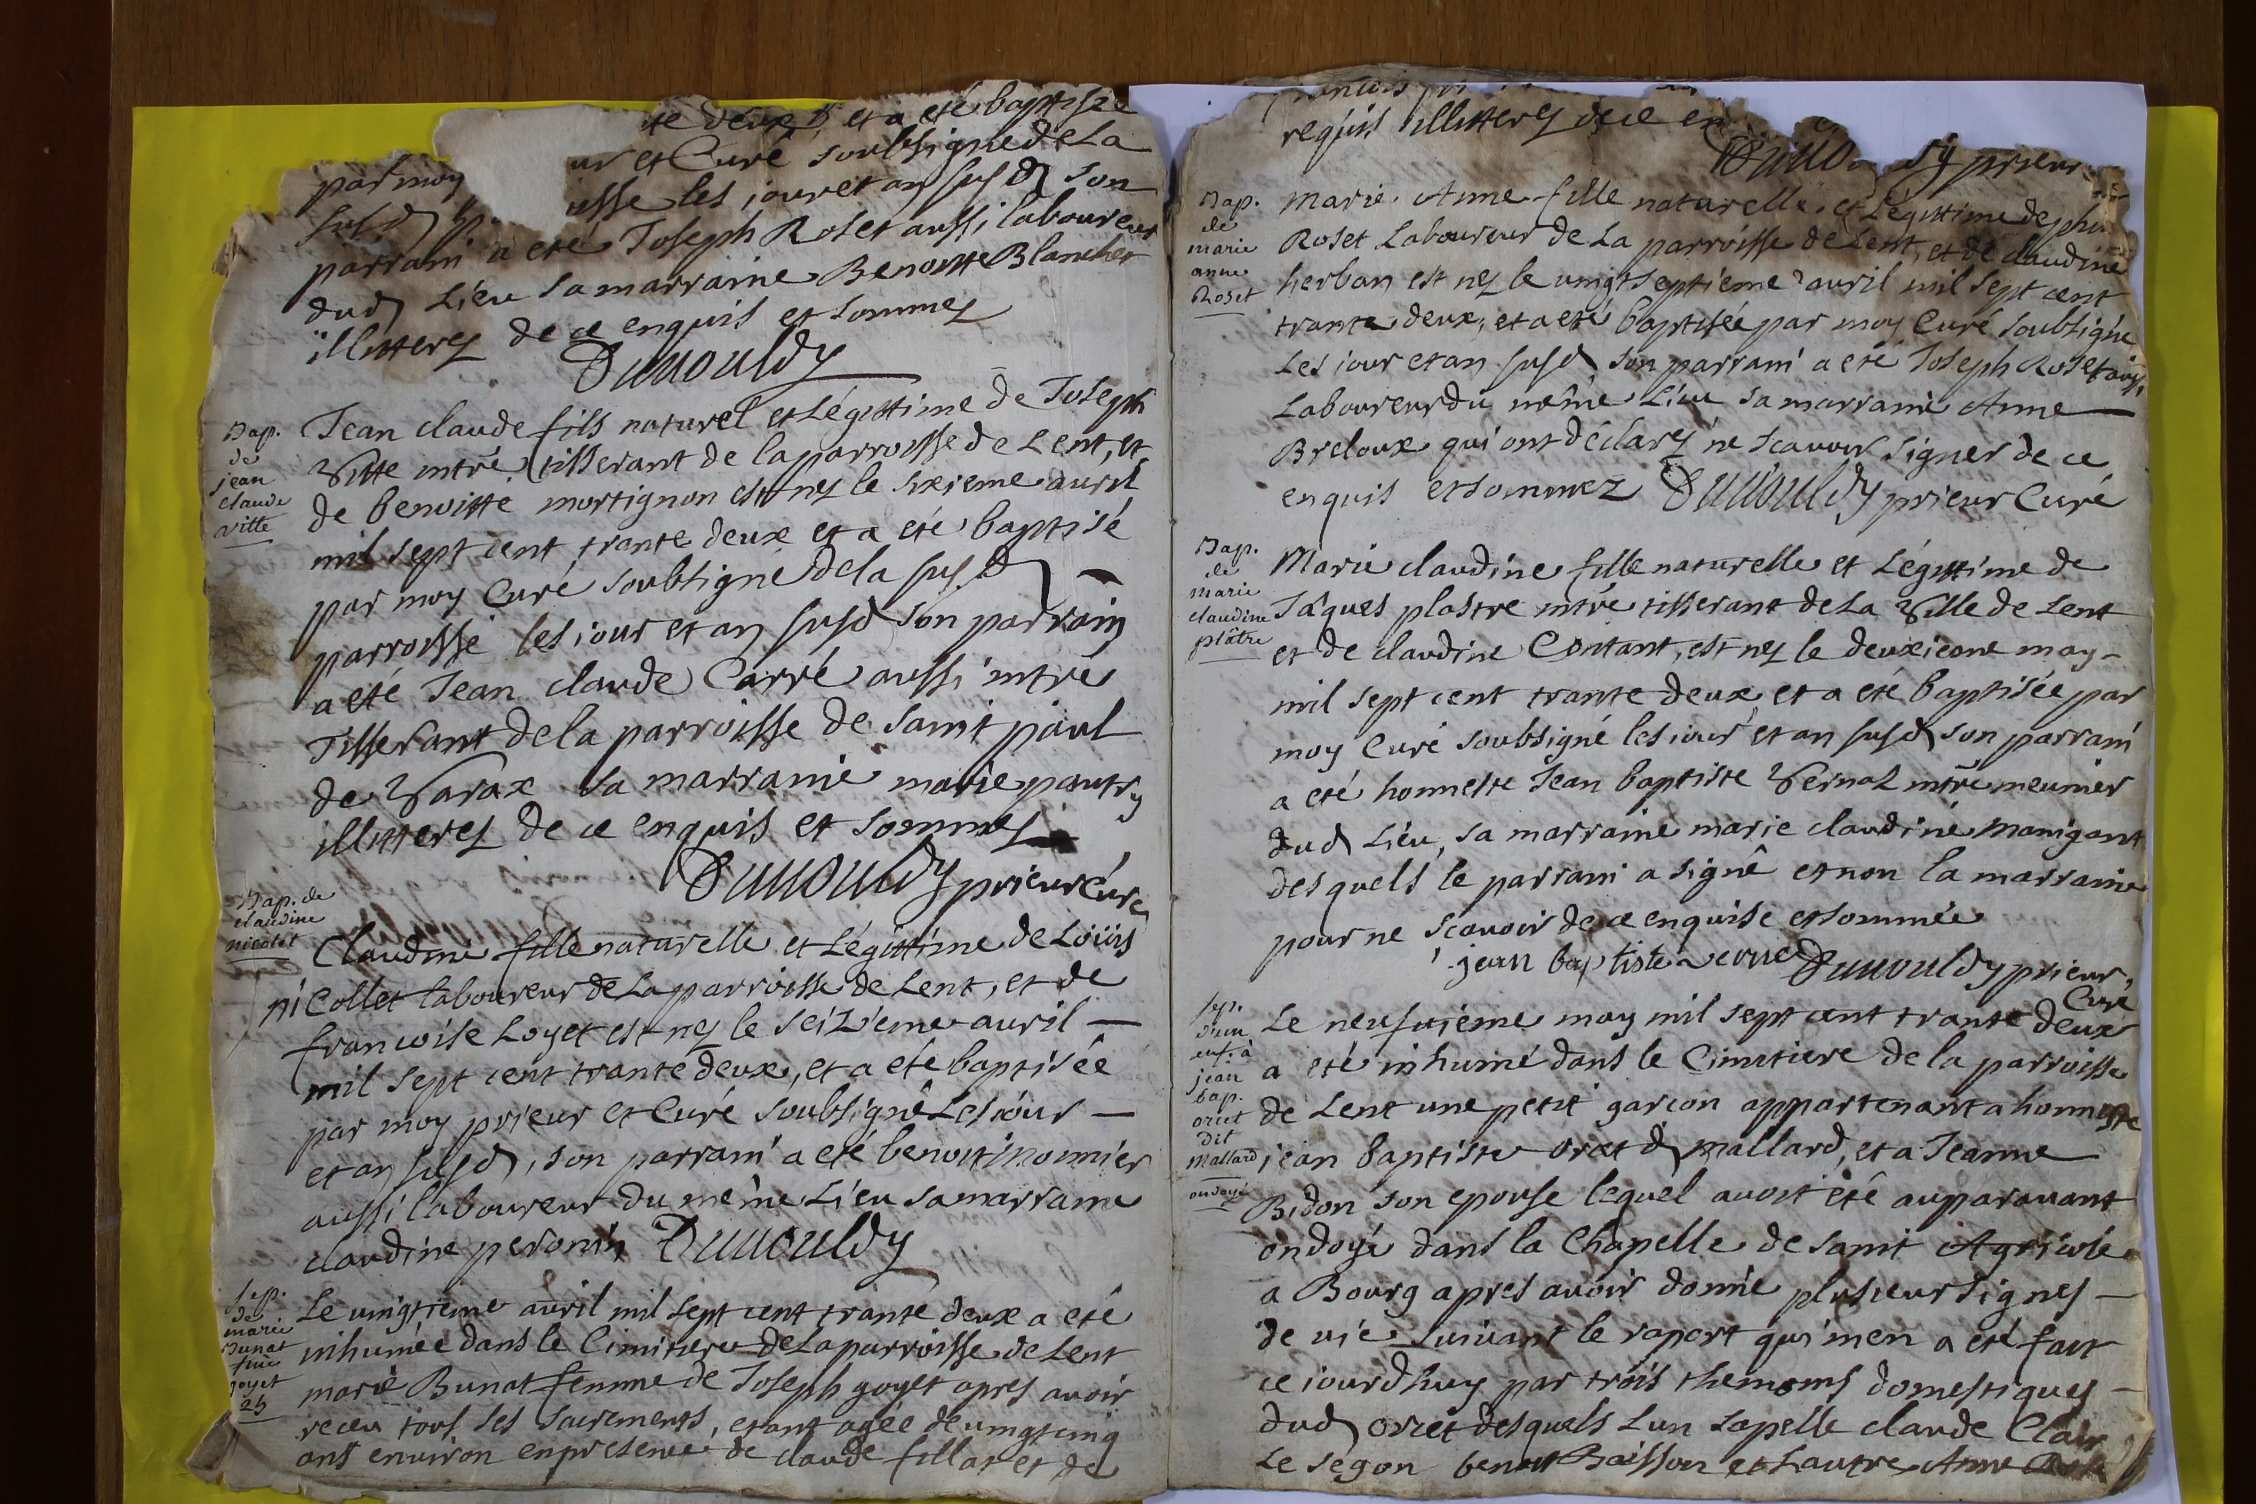 te deux, et a eté baptisze
par moy ur et Curé soubsigné de La
susd p. isse les jour et an susd son
parrain a eté Joseph Roset aussi laboureur
dud Lieu sa marraine Benoitte Blanchet
illitterez de ce enquis et sommez
Dunouldy
Bap.
de
jean
claude
vitte
Jean claude fils naturel et Légittime de Joseph
Vitte mtre tisserant de la parroisse de Lent, et
de benoitte mortignon est nez le sixieme auril
mil sept cent trante deux et a eté baptisé
par moy Curé soubsigné de la susd
parroisse les jour et an susd son parrain
a eté Jean claude Carré aussi mtre
Tisserant de la parroisse de saint paul
de Varax sa marraine marie pautry
illitterez de ce enquis et sommez
Dunouldy prieur Curé
Bap. de
claudine
nicolet
Claudine fille naturelle et Légittime de Loüis
niCollet laboureur de La parroisse de Lent, et de
francoise Loyet est nez le seizieme auril
mil sept cent trante deux, et a eté baptisée
par moy prieur et Curé soubsigné Les jour
et an susd, son parrain a eté benoit monnier
aussi laboureur du meme Lieu sa marraine
claudine peronin Dunouldy
sep.
de
marie
Bunat
fme
goyet
25
Le uingtieme auril mil sept cent trante deux a eté
inhumée dans le Cimitiere de La parroisse de Lent
marie Bunat femme de Joseph goyet apres auoir
receu tous ses sacrements, etant agée de uingtcinq
ans enuiron en presence de claude fillat et de
requis illitterez de ce en
Duno dy prieur
Bap.
de
marie
anne
Roset
Marie Anne fille naturelle et Légittime de
Roset Laboureur de La parroisse de Lent, et de claudine
herban est nez le uingtseptieme auril mil sept cent
trante deux, et a eté baptisée par moy Curé soubsigne
Les jour et an susd son parrain a eté Joseph Roset aussi
Laboureur du même Lieu sa marraine Anne
Breloux qui ont déclarez ne scauoir signer de ce
enquis et sommez Dunouldy prieur Curé
Bap.
de
marie
claudine
plâtre
Marie claudine fille naturelle et Légittime de
Jâques plastre mtre tisserant de La Ville de Lent
et de claudine Contant, est nez le deuxieme may
mil sept cent trante deux et a eté baptisée par
moy Curé soubsigné les jour et an susd son parrain
a eté honneste Jean baptiste Vernaz mtre meunier
dud Lieu, sa marraine marie claudine Manigant
des quels le parrain a signé et non la marraine
pour ne scauoir de ce enquise et sommée
jean baptiste verne Dunouldy prieur,
Curé
sep.
d'un
enf. à
jean
bap.
oriet
dit
Mallard
ondoyé
Le neufuieme may mil sept cent trante deux
a eté inhumé dans le Cimitiere de la parroisse
de Lent une petit garcon appartenant a honneste
jean baptiste oriet d Mallard, et a Jeanne
Bidon son epouse lequel auoit été auparauant
ondoyé dans la Chapelle de saint Agricole
a Bourg apres auoir donné plusieur signes
de uie suiuant le raport qui men a eté fait
ce jourdhuy par trois themoins domestiques
dud oriet desquels Lun sapelle claude Clair
Le segon benoit Boisson et Lautre Anne